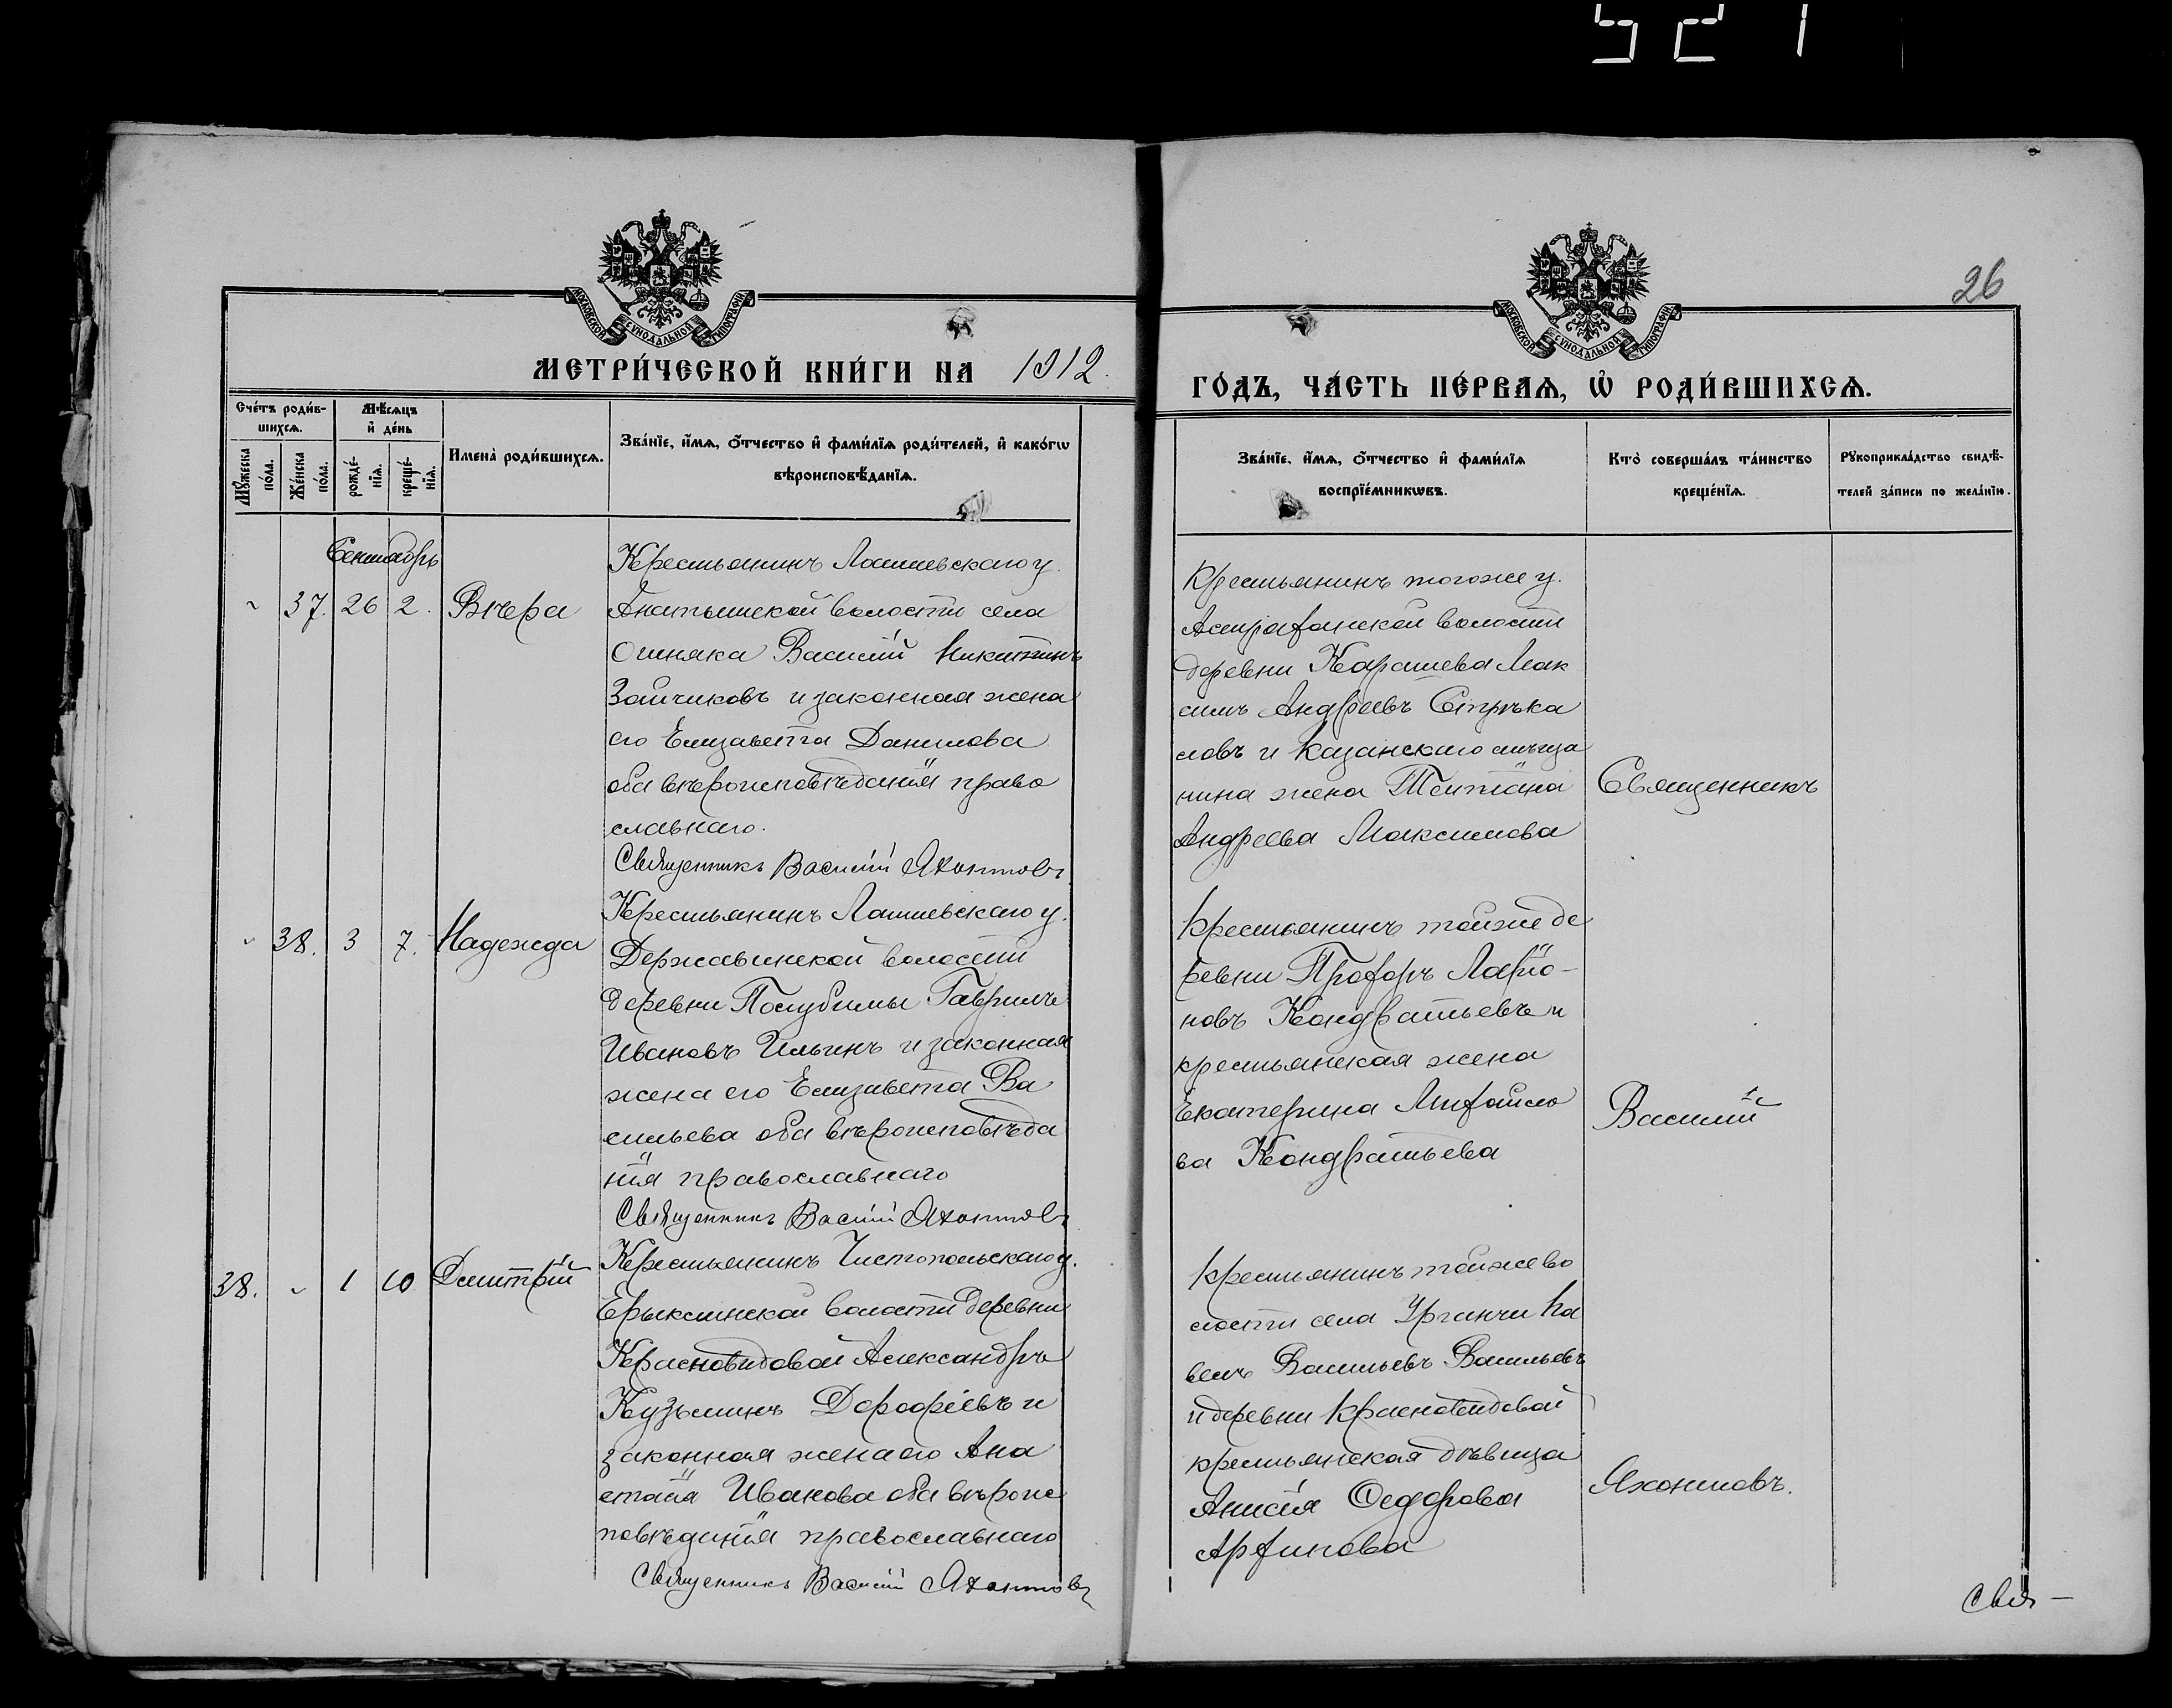 521
26
МОСКОВСКОЙ СУНОДАЛЬНОЙ ТИПОГРАФІИ
МОСКОВСКОЙ СУНОДАЛЬНОЙ ТИПОГРАФІИ
МЕТРИ́ЧЕСКОЙ КНИ́ГИ НА 1912.
ГО́ДЪ, ЧА́СТЬ ПЕ́РВАѦ, Ѡ҆ РОДИ́ВШИХСѦ.
Сче́тъ роди́в-
шихсѧ.
Мꙋ́жеска
по́ла.
Же́нска
по́ла.
Мѣ́сѧцъ
и҆ де́нь
рожде́-
нїѧ.
креще́-
нїѧ.
Имена̀ роди́вшихсѧ.
Зва́нїе, и҆́мѧ, ѻ҆́тчество и҆ фами́лїѧ роди́телей, и҆ како́гѡ
вѣроисповѣ́данїѧ.
Зва́нїе, и҆́мѧ, ѻ҆́тчество и҆ фами́лїѧ
воспрїе́мникѡвъ.
Кто̀ соверша́лъ та́инство
креще́нїѧ.
Рꙋкоприкла́дство свидѣ́-
телей за́писи по жела́нїю.
Сентябрь
37. 26 2. Вѣра
Крестьянинъ Лаишевскаго у.
Анатышской волости села
Ошняка Василій Никитинъ
Зайчиковъ и законная жена
его Елизавета Данилова
оба вѣроисповѣданія право
славнаго.
Священникъ Василій Яхонтовъ
Крестьянинъ тогоже у.
Астраханской волости
деревни Карашева Мак
симъ Андреевъ Стрѣка
ловъ и Казанскаго мѣща
нина жена Татіана
Андреева Максимова
Священникъ
38. 3 7. Надежда
Крестьянинъ Лаишевскаго у.
Державинской волости
деревни Полубимы Гавріилъ
Ивановъ Ильинъ и законная
жена его Елизавета Ва
сильева оба вѣроисповѣда
нія православнаго
Священникъ Василій Яхонтовъ
Крестьянинъ тойже де
ревни Прохоръ Ларіо-
новъ Кондратьевъ и
крестьянская жена
Екатерина Михайло
ва Кондратьева
Василій
38. 1 10 Дмитрій
Крестьянинъ Чистопольскаго у.
Ерыклинской волости деревни
Красновидовой Александръ
Кузьминъ Дорофѣевъ и
законная жена его Ана
стасія Иванова оба вѣроис
повѣданія православнаго
Священникъ Василій Яхонтовъ
Крестьянинъ тойже во
лости села Урганчи Па
велъ Васильевъ Васильевъ
и деревни Красновидовой
крестьянская дѣвица
Анисія Ѳедорова
Архипова
Яхонтовъ.
Свя-